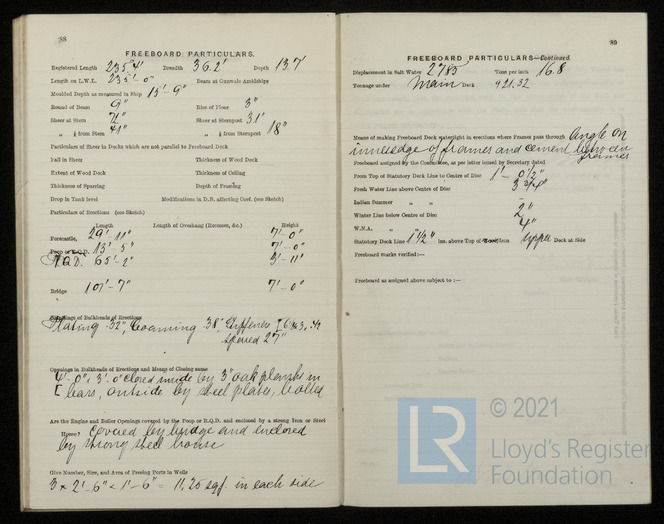 88
FREEBOARD PARTICULARS.
Registered Length 235'4' Breadth 36.2' Depth 13.7'
Length on L.W.L. 235'-0" Beam at Gunwale Amidships
Moulded Depth as measured in Ship 15'-9"
Round of Beam 9" Rise of Floor 3"
Sheer at Stem Sheer at Sternpost 31"
" ⅛ from Stem 41" " ⅛ from Sternpost 18"
Particulars of Sheer in Decks which are not parallel to Freeboard Deck
Fall in Sheer Thickness of Wood Deck
Extent of Wood Deck Thickness of Ceiling
Thickness of Sparring Depth of Framing
Drop in Tank level Modifications in D.B. affecting Coef. (see Sketch)
Particulars of Erections (see Sketch)
Length Length of Overhang (Recesses, &c.) Height
Forecastle, 29'-11" 7'-0"
Poop or R.Q.D. 15'-5" 7'-0"
R.Q.D. 65'-2" 3'-11"
Bridge 107'-7" 7'-0"
Scantlings of Bulkheads of Erections
Plating .32", Coaming .38", Stiffener
spaced 27"
Openings in Bulkheads of Erections and Means of Closing same
4'-0" x 3'-0" closed inside by 3" oak planks in
[ bars, outside by steel plates, bolted
Are the Engine and Boiler Openings covered by the Poop or R.Q.D. and enclosed by a strong Iron or Steel
House? Covered by bridge and enclosed
by strong steel house
Give Number, Size, and Area of Freeing Ports in Wells
3 x 2'-6" x 1'-6" = 11,25 sqf. in each side
89
FREEBOARD PARTICULARS—Continued.
Displacement in Salt Water 2785 Tons per inch 16.8
Tonnage under Main Deck 921.32
Means of making Freeboard Deck watertight in erections where Frames pass through Angle on
inneredge of frames and cement between
frames
Freeboard assigned by the Committee, as per letter issued by Secretary dated
From Top of Statutory Deck Line to Centre of Disc 1'-0½"
Fresh Water Line above Centre of Disc 3¾"
Indian Summer " "
Winter Line below Centre of Disc 2"
W.N.A. " 4"
Statutory Deck Line 1½" ins. above Top of Iron Upper Deck at Side
Freeboard marks verified:—
Freeboard as assigned above subject to :—
LR
© 2021
Lloyd's Register
Foundation